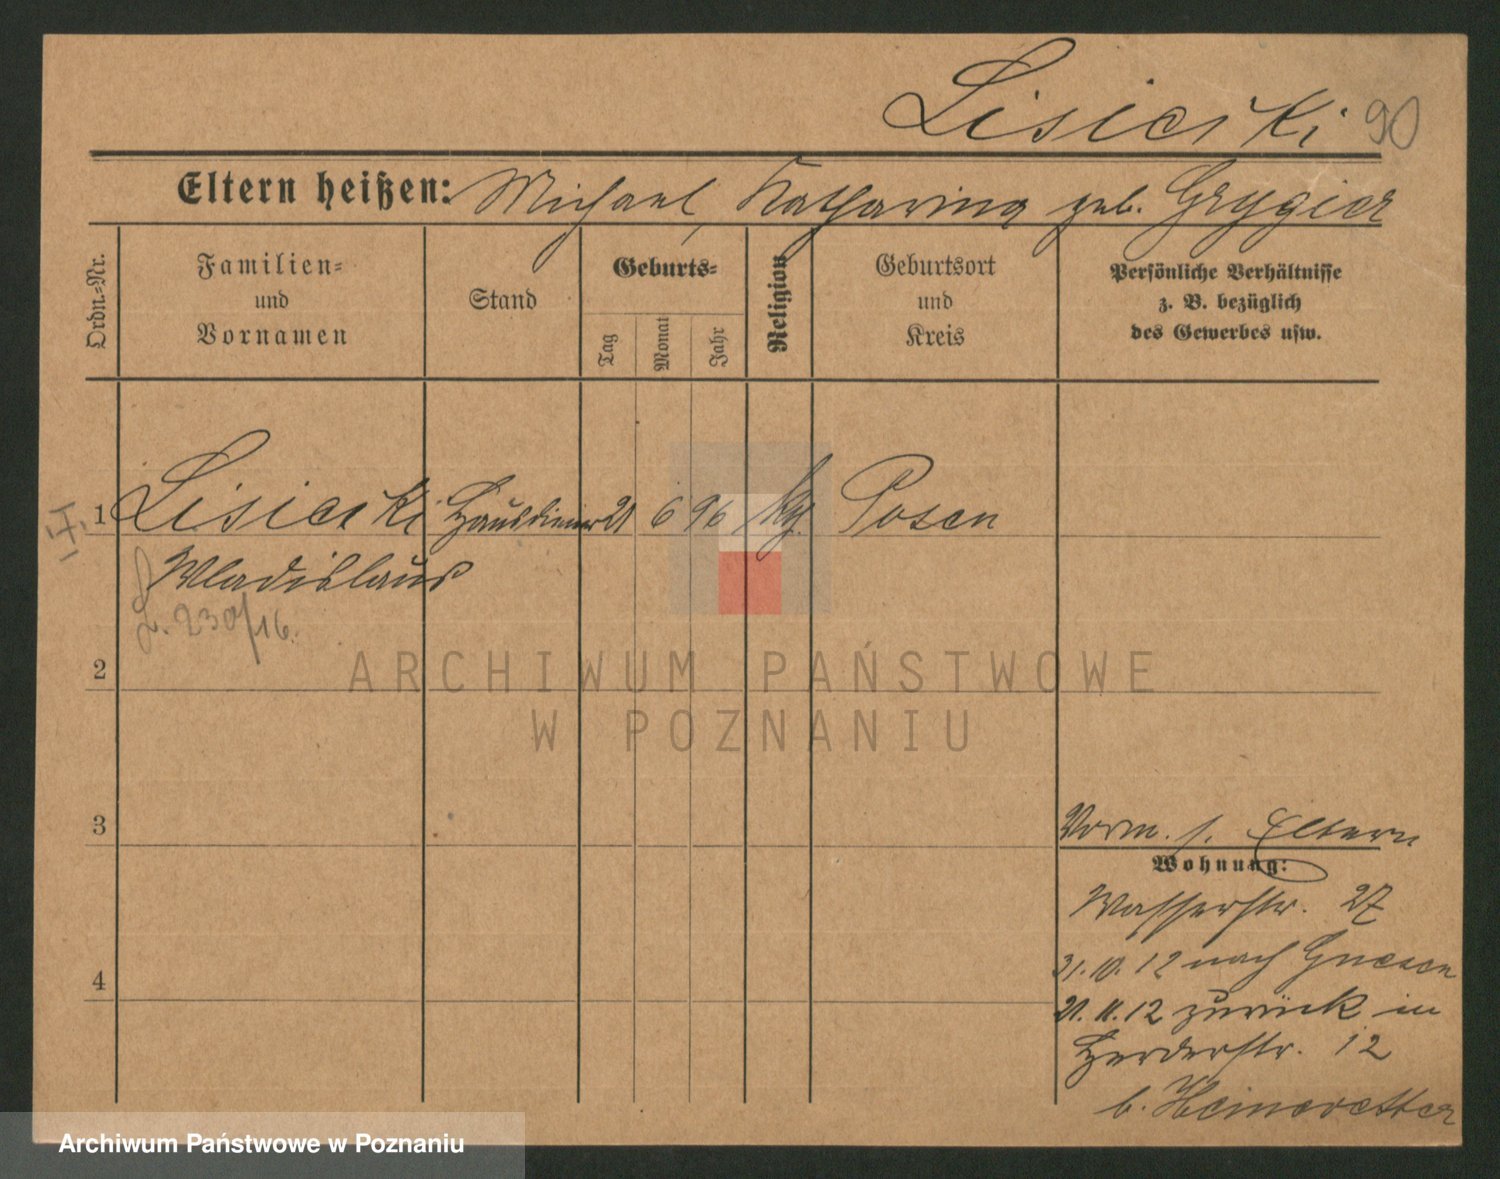 Lisiecki 90
Eltern heißen: Michael, Katharina geb. Grygier
Ordn.-Nr.
Familien-
und
Vornamen
Stand
Geburts-
Tag
Monat
Jahr
Religion
Geburtsort
und
Kreis
Persönliche Verhältnisse
z. B. bezüglich
des Gewerbes usw.
1 Lisiecki Hausdiener 21 6 96 Posen
Wladislaus
L. 230/16.
2
3
4
Vorm. s. Eltern
Wohnung:
Wasserstr. 27
31.10.12 nach Gnesen
21.11.12 zurück in
Herderstr. 12
b.
ARCHIWUM PAŃSTWOWE
W POZNANIU
Archiwum Państwowe w Poznaniu